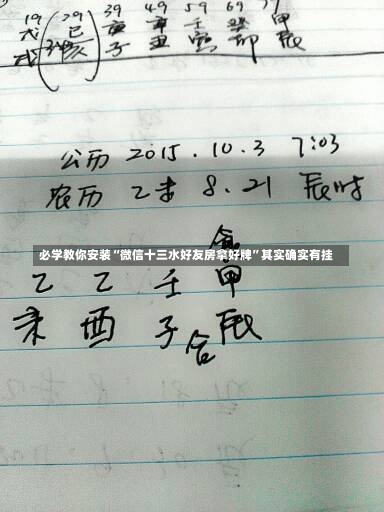 19 29 39 49 59 69 77
戊 己 庚 辛 壬 癸 甲
戌 亥 子 丑 寅 卯 辰
公历 2015.10.3 7:03
农历 乙未 8.21 辰时
必学教你安装“微信十三水好友房拿好牌”其实确实有挂
乙 乙 壬 甲
未 酉 子 辰
合